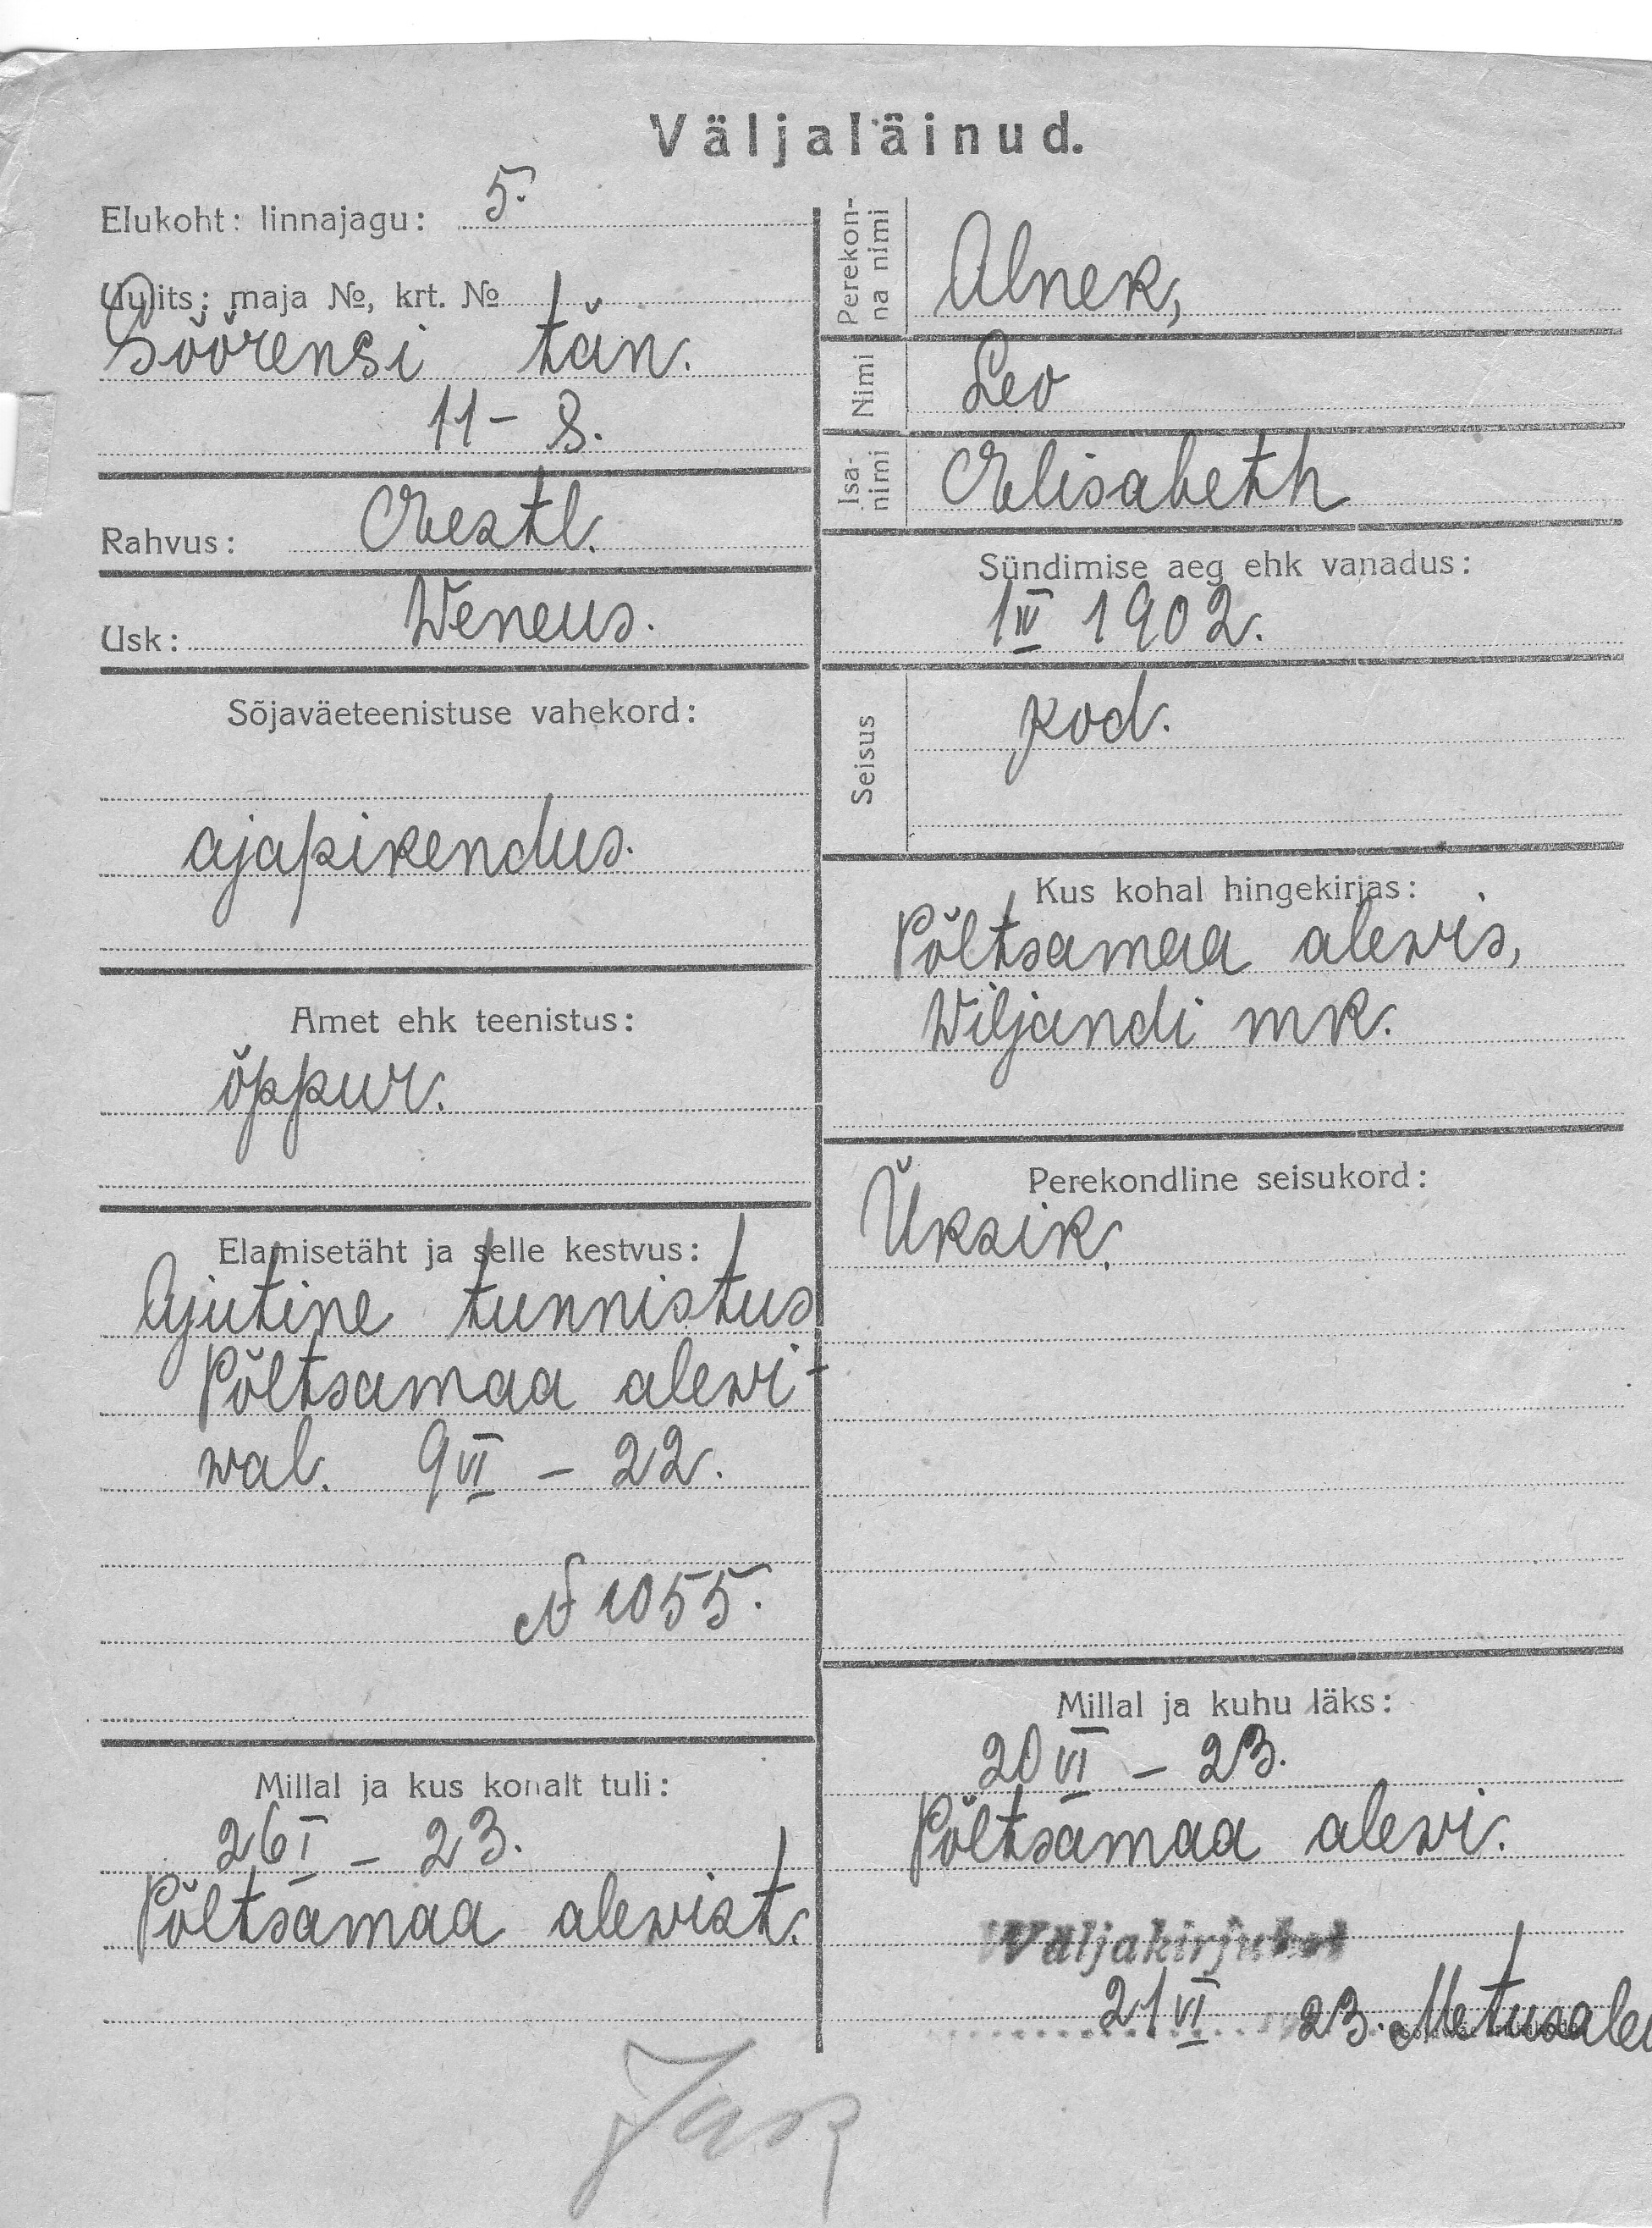 Väljaläinud.
Elukoht: linnajagu: 5.
Uulits; maja №, krt. №
Söörensi tän.
11 – 8.
Rahvus: Eestl.
Usk: Weneus.
Sõjaväeteenistuse vahekord:
ajapikendus.
Amet ehk teenistus:
õppur.
Elamisetäht ja selle kestvus:
Ajutine tunnistus
Põltsamaa alewi-
wal. 9 VI – 22.
№ 1055.
Millal ja kus kohalt tuli:
26 I – 23.
Põltsamaa alewist.
Perekon-
na nimi
Alnek,
Nimi
Leo
Isa-
nimi
Elisabeth
Sündimise aeg ehk vanadus:
1 IV 1902.
Seisus
kod.
Kus kohal hingekirjas:
Põltsamaa alewis,
Wiljandi mk.
Perekondline seisukord:
Üksik.
Millal ja kuhu läks:
20 VI – 23.
Põltsamaa alewi.
Wäljakirjutet
21 VI 23.